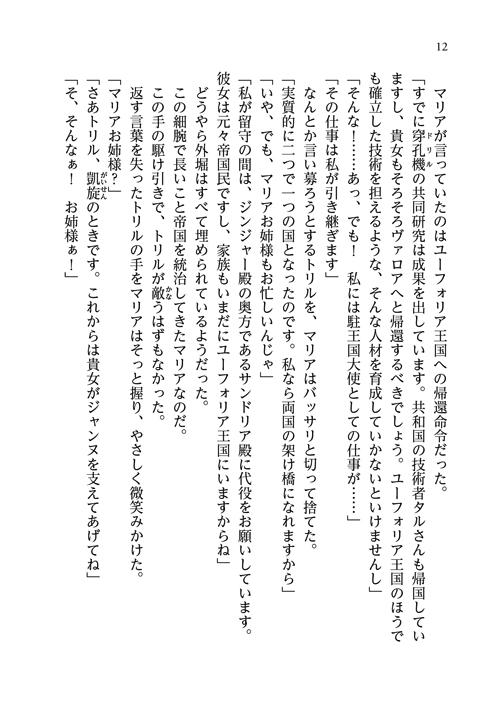 12
マリアが言っていたのはユーフォリア王国への帰還命令だった。
「すでに穿孔機の共同研究は成果を出しています。共和国の技術者タルさんも帰国してい
ますし、貴女もそろそろヴァロアへと帰還するべきでしょう。ユーフォリア王国のほうで
も確立した技術を担えるような、そんな人材を育成していかないといけませんし」
「そんな！……あっ、でも！　私には駐王国大使としての仕事が……」
「その仕事は私が引き継ぎます」
なんとか言い募ろうとするトリルを、マリアはバッサリと切って捨てた。
「実質的に二つで一つの国となったのです。私なら両国の架け橋になれますから」
「いや、でも、マリアお姉様もお忙しいんじゃ」
「私が留守の間は、ジンジャー殿の奥方であるサンドリア殿に代役をお願いしています。
彼女は元々帝国民ですし、家族もいまだにユーフォリア王国にいますからね」
どうやら外堀はすべて埋められているようだった。
この細腕で長いこと帝国を統治してきたマリアなのだ。
この手の駆け引きで、トリルが敵うはずもなかった。
返す言葉を失ったトリルの手をマリアはそっと握り、やさしく微笑みかけた。
「マリアお姉様？」
「さあトリル、凱旋のときです。これからは貴女がジャンヌを支えてあげてね」
「そ、そんなぁ！　お姉様ぁ！」